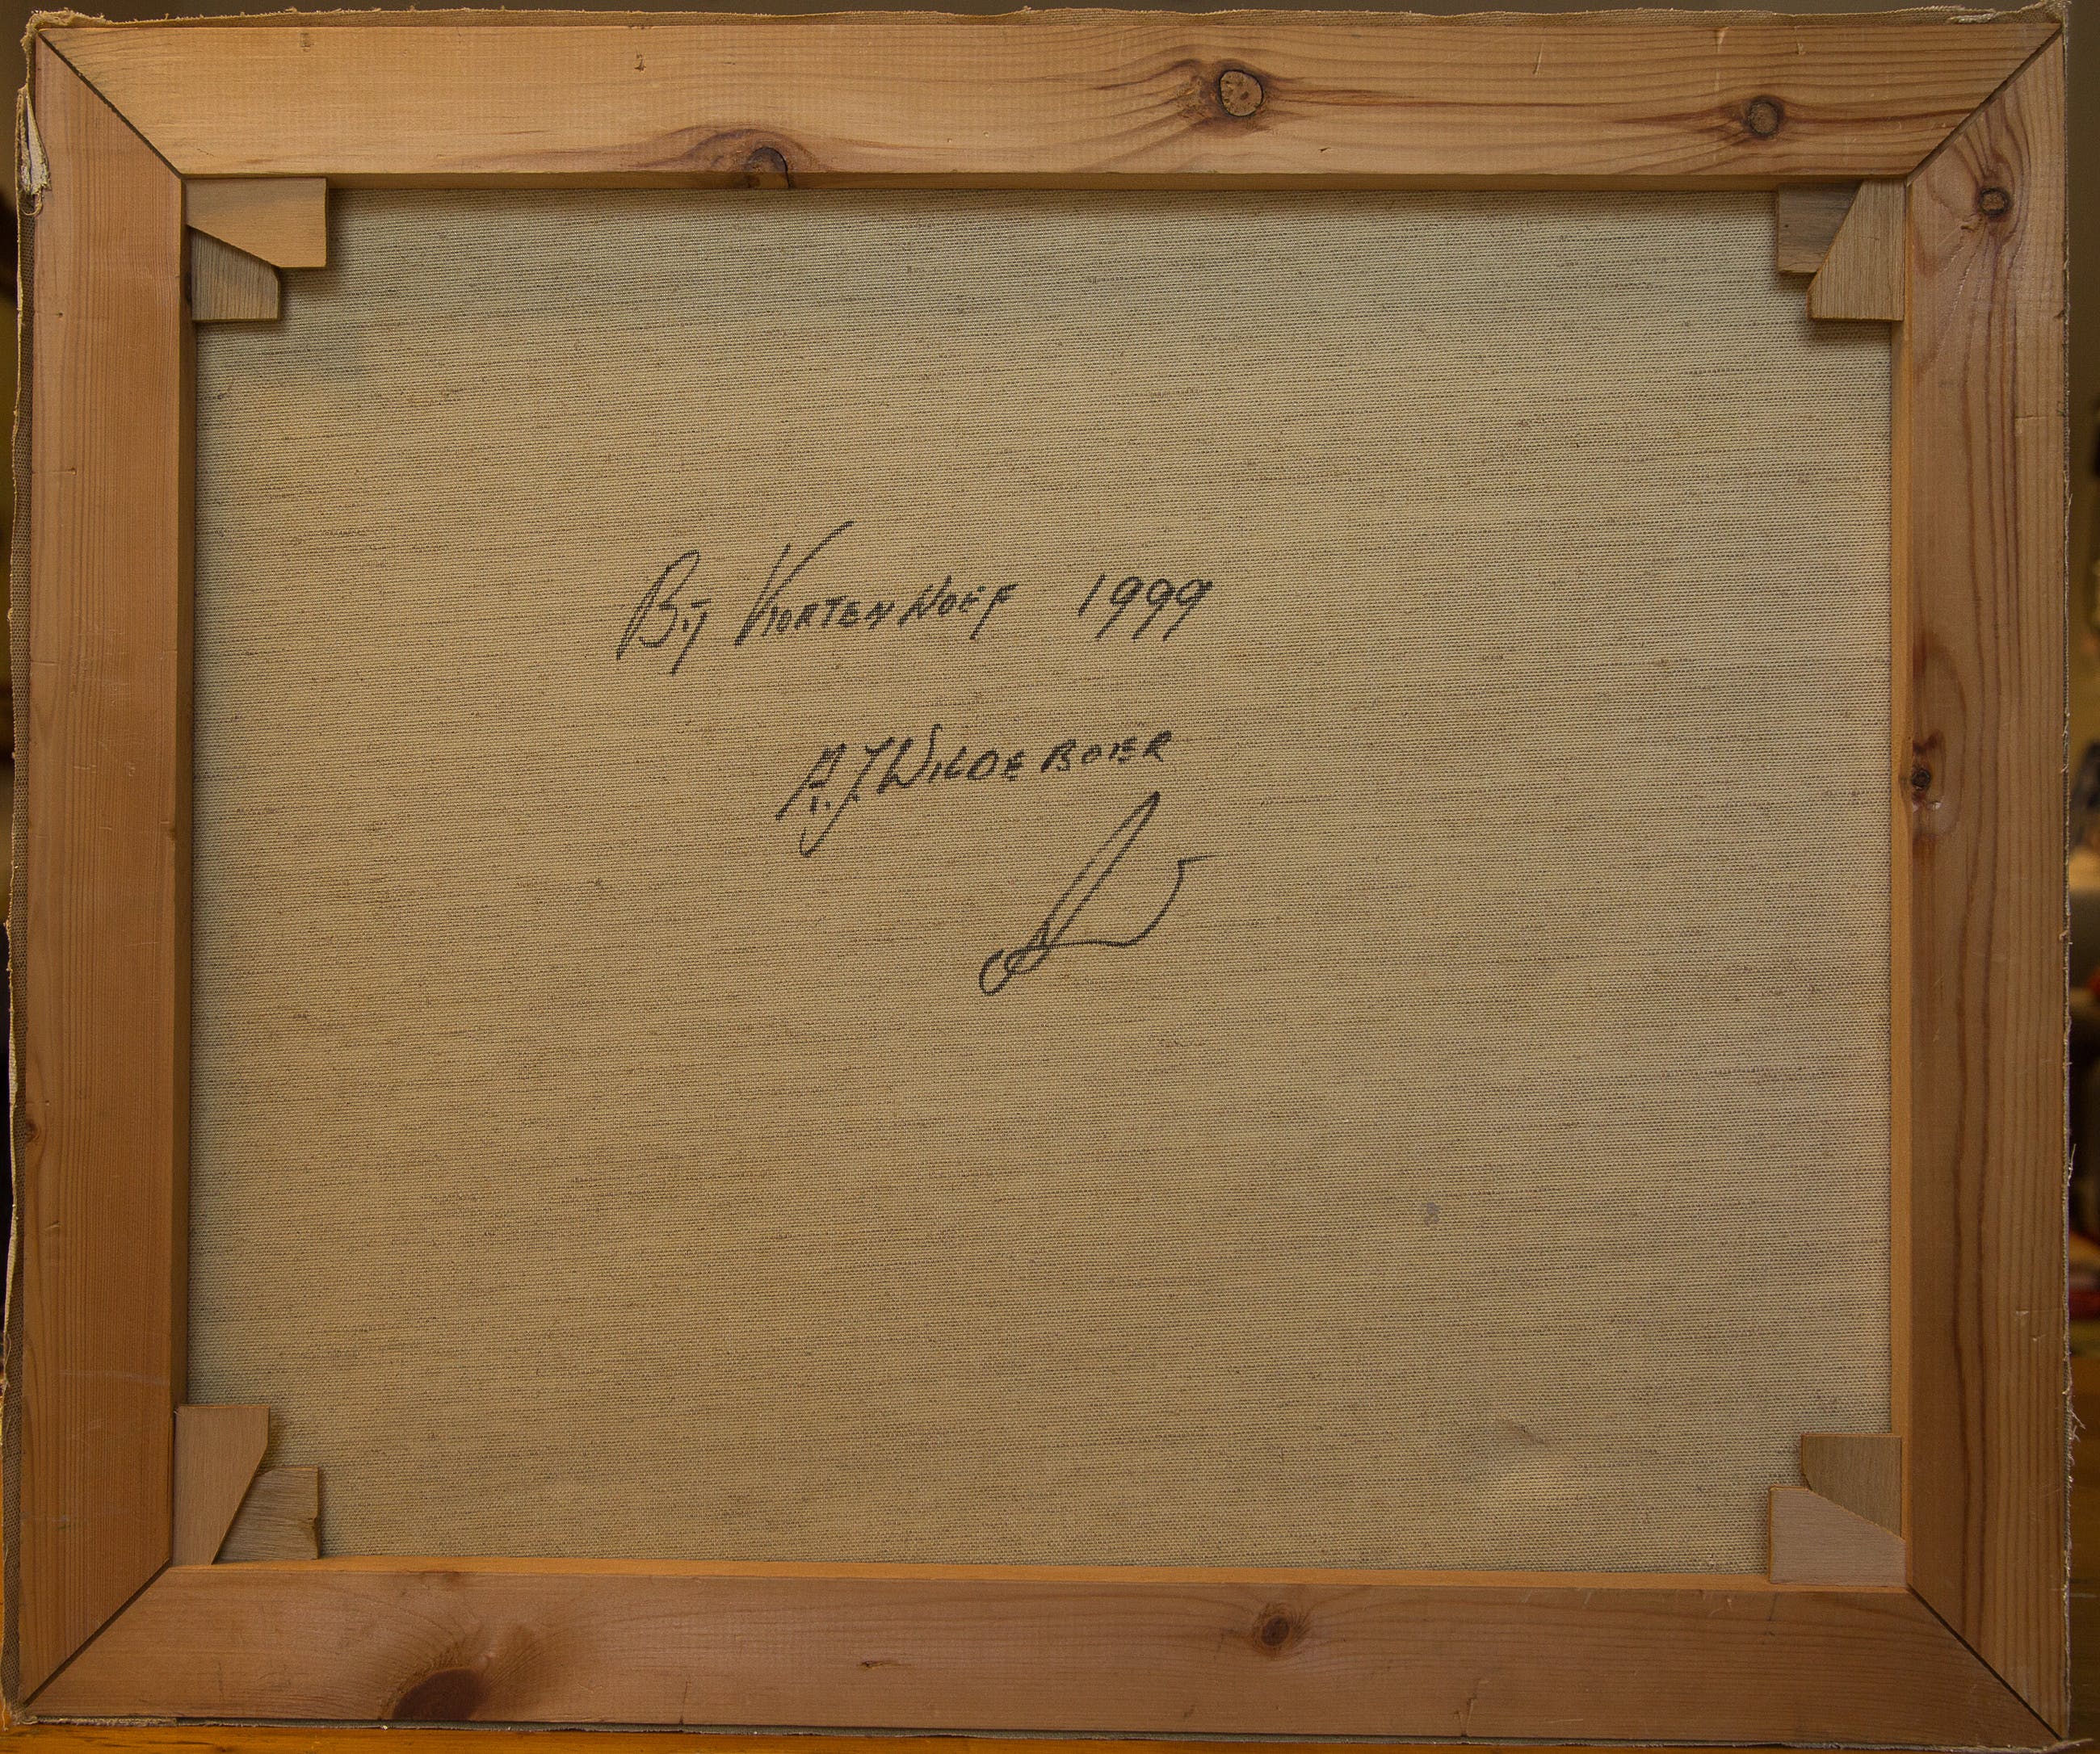 Bij Kortenhoef 1999
A.J. Wildeboer